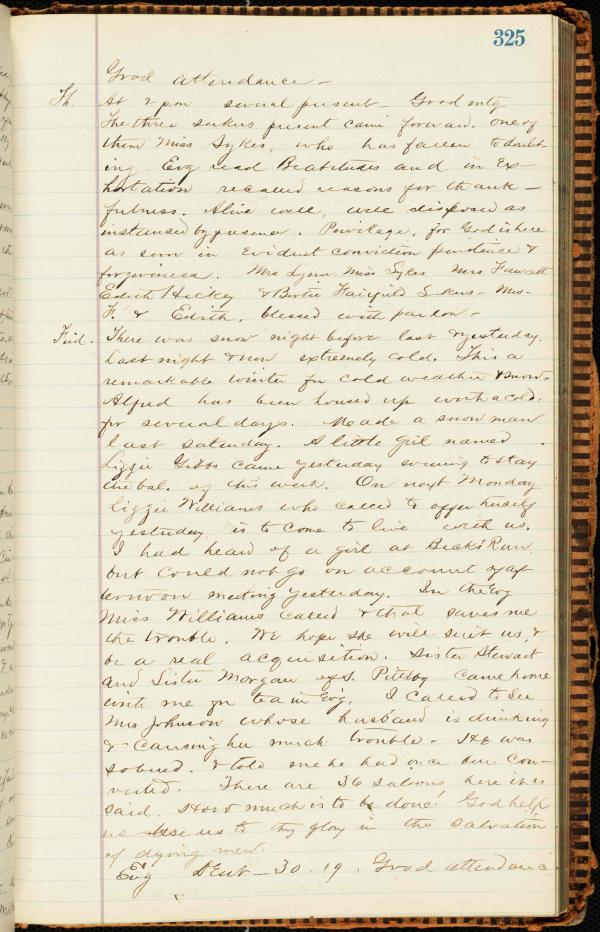 325
Good attendance –
Th. At 2 pm several present – Good mtg
The three seekers present came forward. one of
them Miss Sykes, who has fallen to doubt-
ing Evg read Beatitudes and in Ex-
hortation recalled reasons for thank-
fulness. Alive well, well disposed as
instanced by presence. Privilege, for God is here
as seen in Evident conviction penitence &
forgiveness. Mrs Lynn Miss Sykes Mrs Fawcett
Edith Hickey & Birtie Fairfield Seekers – Mrs.
F. & Edith, blessed with pardon –
Frid. There was snow night before last & yesterday.
Last night & now extremely cold. This a
remarkable winter for cold weather & snow.
Alfred has been housed up with a cold,
for several days. Made a snow man
last Saturday. A little girl named
Lizzie Gibbs came yesterday evening to stay
the bal. of this week. On next Monday
Lizzie Williams who called to offer herself
yesterday is to come to live with us.
I had heard of a girl at Beck's Run.
but could not go on account of af
ternoon meeting yesterday. In the Evg
Miss Williams called & that saves me
the trouble. We hope she will suit us, &
be a real acquisition. Sister Stewart
and Sister Morgan of S. Pittsbg came home
with me for tea in Ev'g. I called to see
Mrs Johnson whose husband is drinking
& causing her much trouble. He was
sobered. & told me he had once been con-
verted. There are 36 saloons here it is
said. How much is to be done! God help
us use us to thy glory in the salvation
of dying men.
Evg Deut – 30. 19. Good attendance